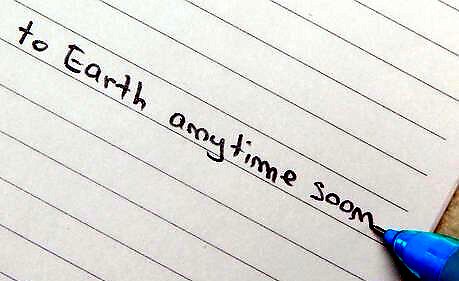 to Earth anytime soon